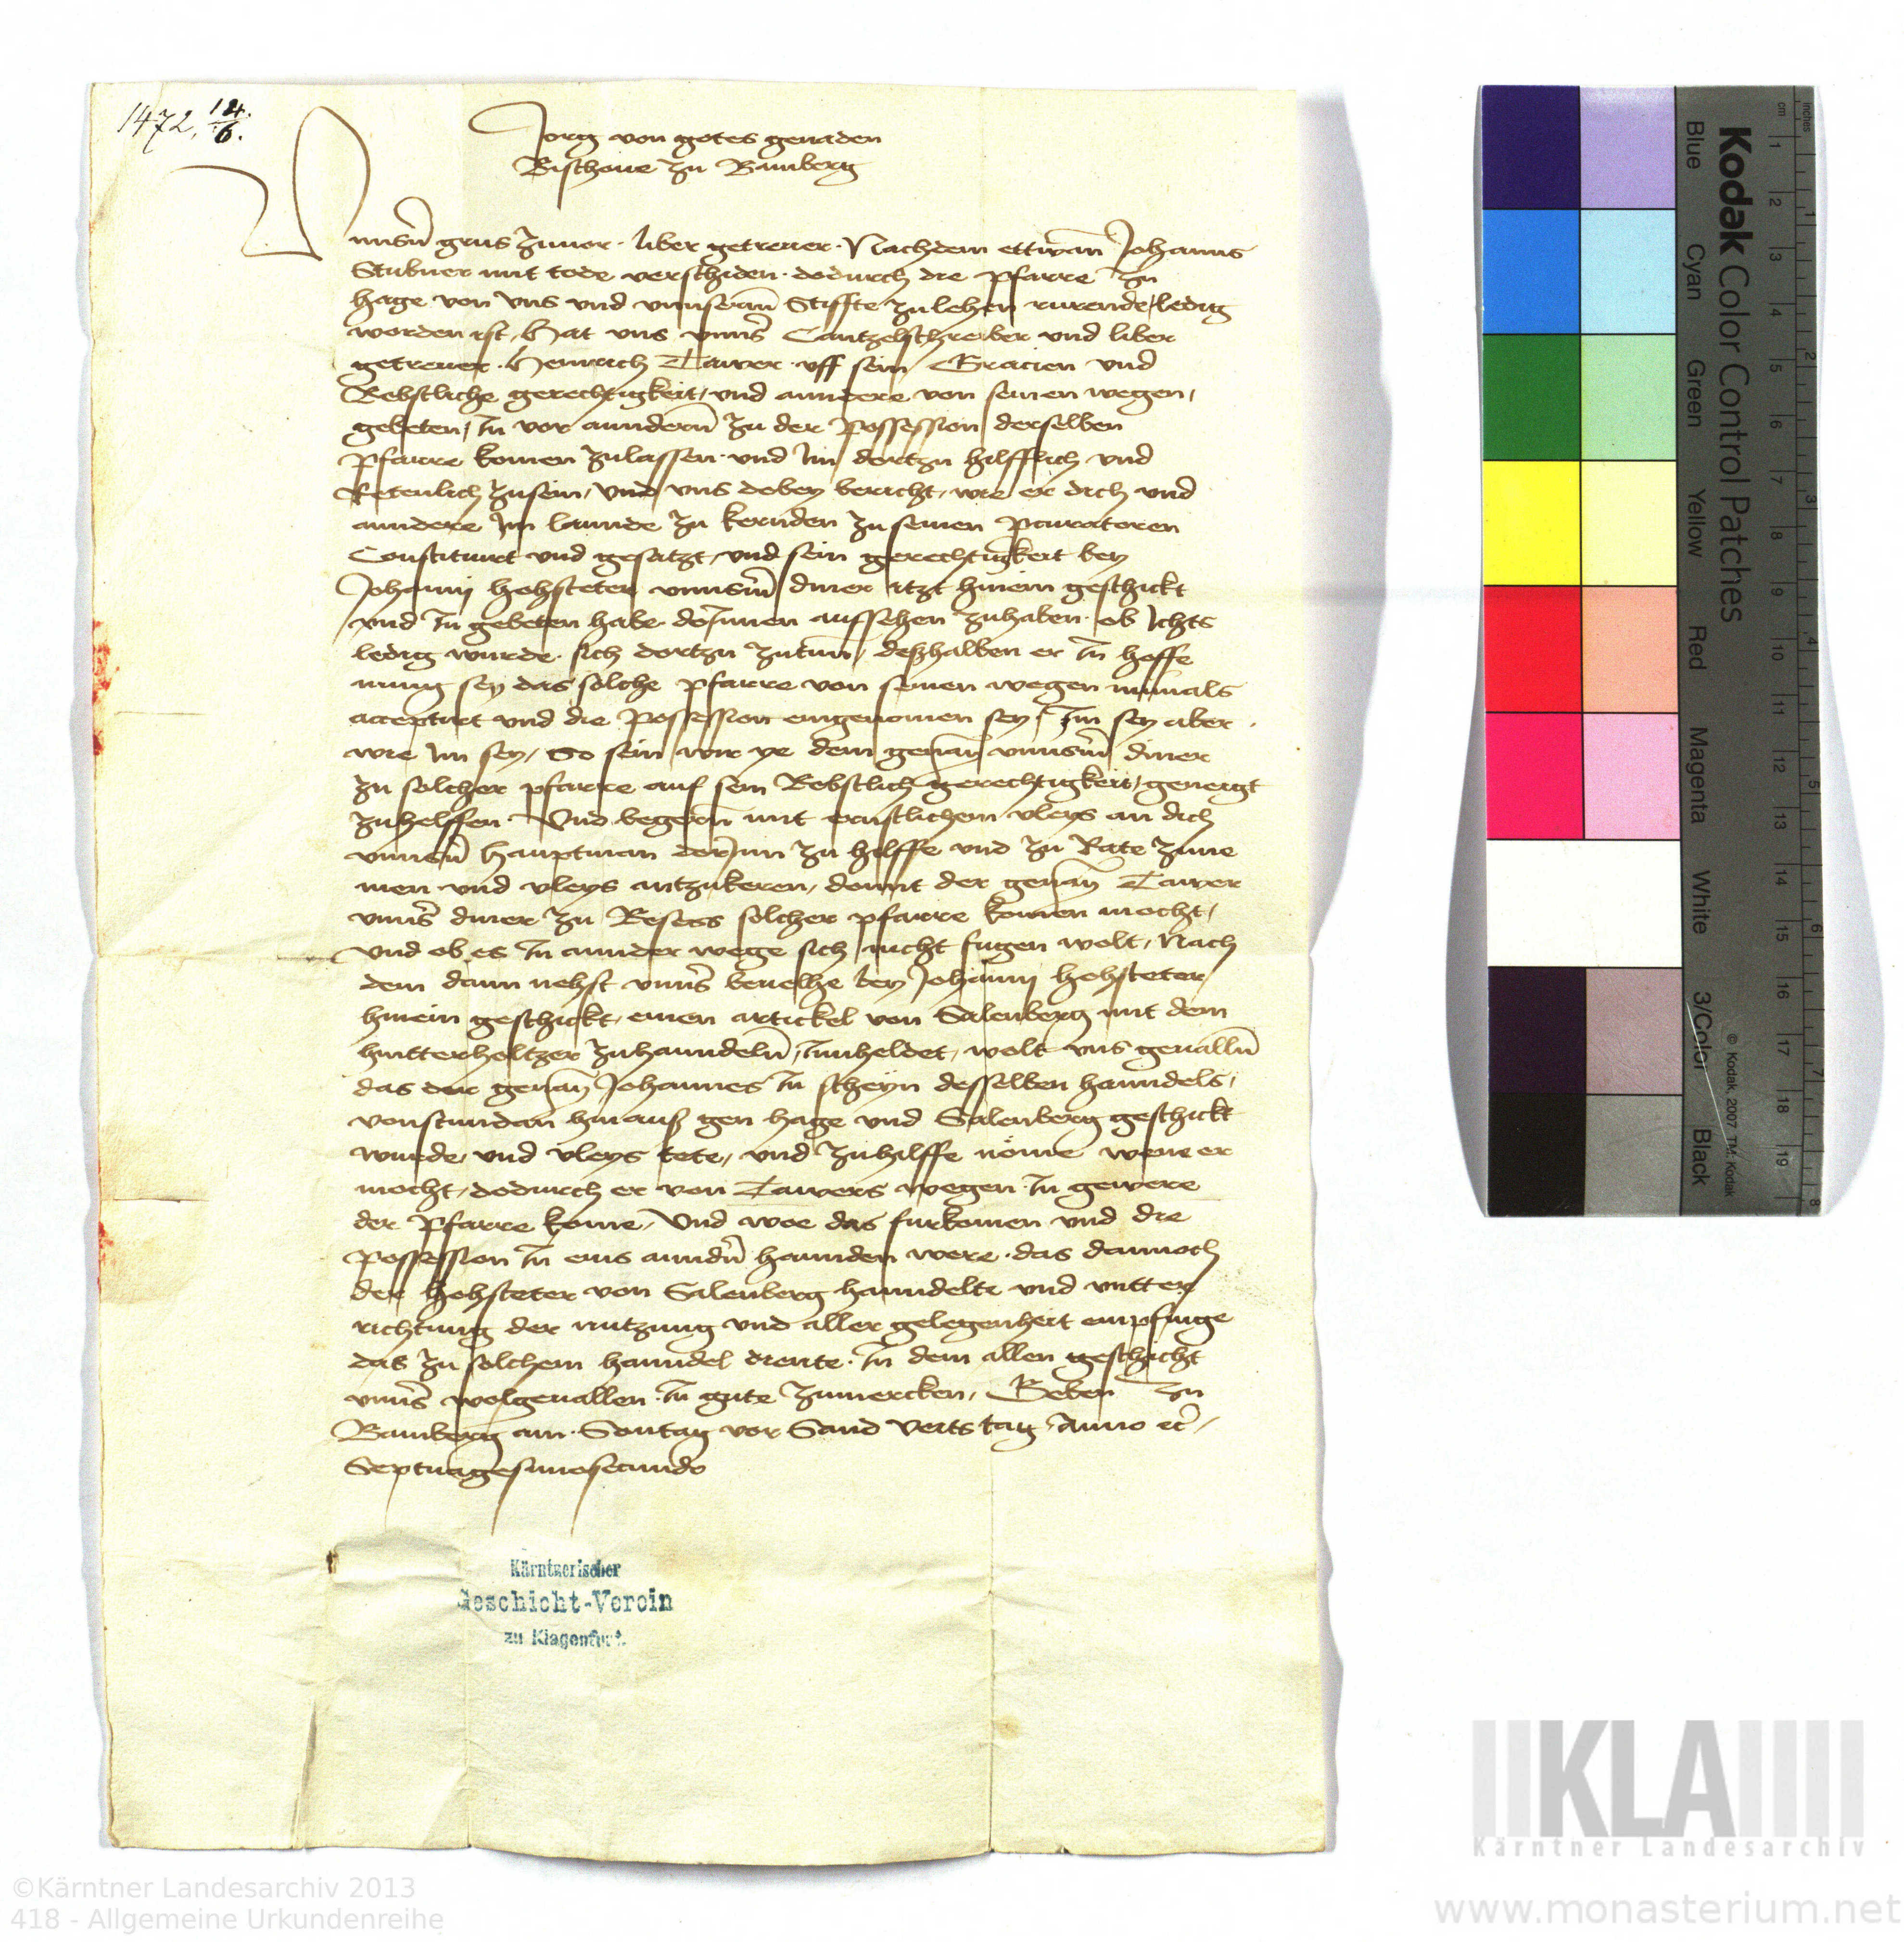 1472, 14/6.
Jorg von gotes genaden
Bischoue zu Bamberg
Unnsern grus zuuor. liber getrewer. Nachdem ettwan Johanns
Stubner mit tode verschiden. dodurch die pfarre zu
hage von vns und vnnserm Stiffte zulehen rurende, ledig
worden ist, Hat vns vnns Cantzelschreiber und liber
getrewer. Heinrich Tawer. uff sein Gracien und
Bebstliche gerechtigkeit, und anndere von seinen wegen,
gebeten, In vor annderen zu der Possession derselben
Pfarre komen zulassen. und Im dortzu hilfflich und
Retenlich zusein, Und vns dobey bericht, wie er dich und
anndere Im lannde zu kernden zu seinen procuratoren
Constituirt und gesatzt, und sein gerechtigkeit bey
Johanni hohsteter vnnserm diner itzt hinein geschickt
und In gebeten habe dorinnen aufsehen zuhaben. ob Ichts
ledig wurde. sich dortzu zutun, deßhalben er In hoffe
nung sey das solche pfarre von seinen wegen nimals
acceptirt und die Possession eingenomen sey, Im sey aber
wie Im sey, So sein wir ye dem genan vnnserm diner
zu solcher pfarre auf sein Bebstlich gerechtigkeit, geneigt
zuhelffen. Und begern mit ernstlichem vleys an dich
vnnsern Hauptman dorInn zu hilffe und zu Rate zune
men und vleys antzukeren, domit der genan Tawer
vnns diner zu Besess solcher pfarre komen mocht,
und ob es In annder wege sich nicht fugen wolt, Nach
dem dann nehst vnns beuelhe bey Johanni hohsteter
hinein geschickt, einen artickel von Salenberg mit dem
hintterholtzer zuhanndeln, Innheldet, wolt vns geualln
das der genan Johannes In scheyn desselben hanndels,
vonstundan hinauß gen hage und Salenberg geschickt
wurde, und vleys tete, und zuhilffe nome wene er
mocht, dodurch er von Tawers wegen. In gewere
der Pfarre kome, Und woe das furkomen und die
Possession In eins anndern hannden were. das dannoch
der hohsteter von Salenberg hanndelte und untter
richtung der nutzung und aller gelegenheit empfinge
das zu solchem hanndel diente. In dem allen geschicht
vnns wolgeuallen. In gute zumercken, Geben zu
Bamberg am. Sontag vor Sand Veits tag, Anno etc,
Septuagesimosecundo
Kärntnerischer
Geschicht-Verein
zu Klagenfurt.
Kodak Color Control Patches
Blue Cyan Green Yellow Red Magenta White 3/Color Black
© Kodak, 2007 TM: Kodak
inches 1 2 3 4 5 6 7 8
cm 1 2 3 4 5 6 7 8 9 10 11 12 13 14 15 16 17 18 19
KLA
Kärntner Landesarchiv
©Kärntner Landesarchiv 2013
418 - Allgemeine Urkundenreihe
www.monasterium.net